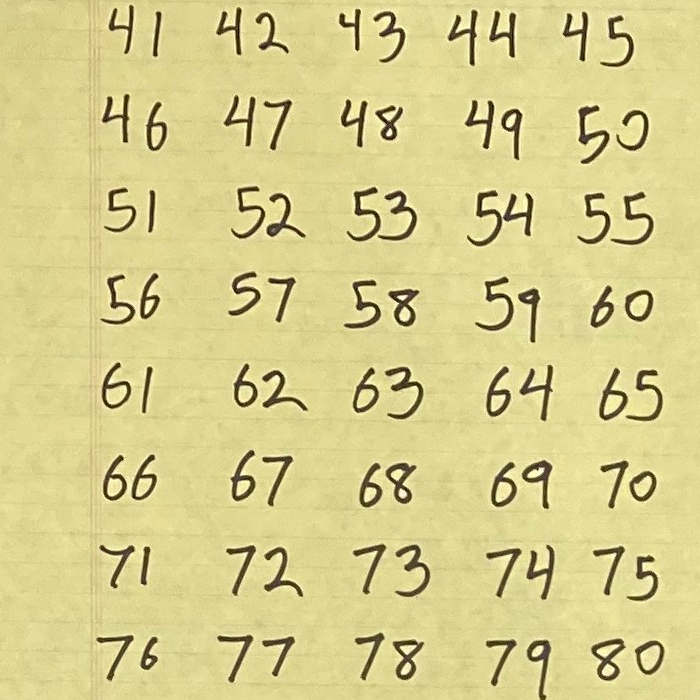 41 42 43 44 45
46 47 48 49 50
51 52 53 54 55
56 57 58 59 60
61 62 63 64 65
66 67 68 69 70
71 72 73 74 75
76 77 78 79 80